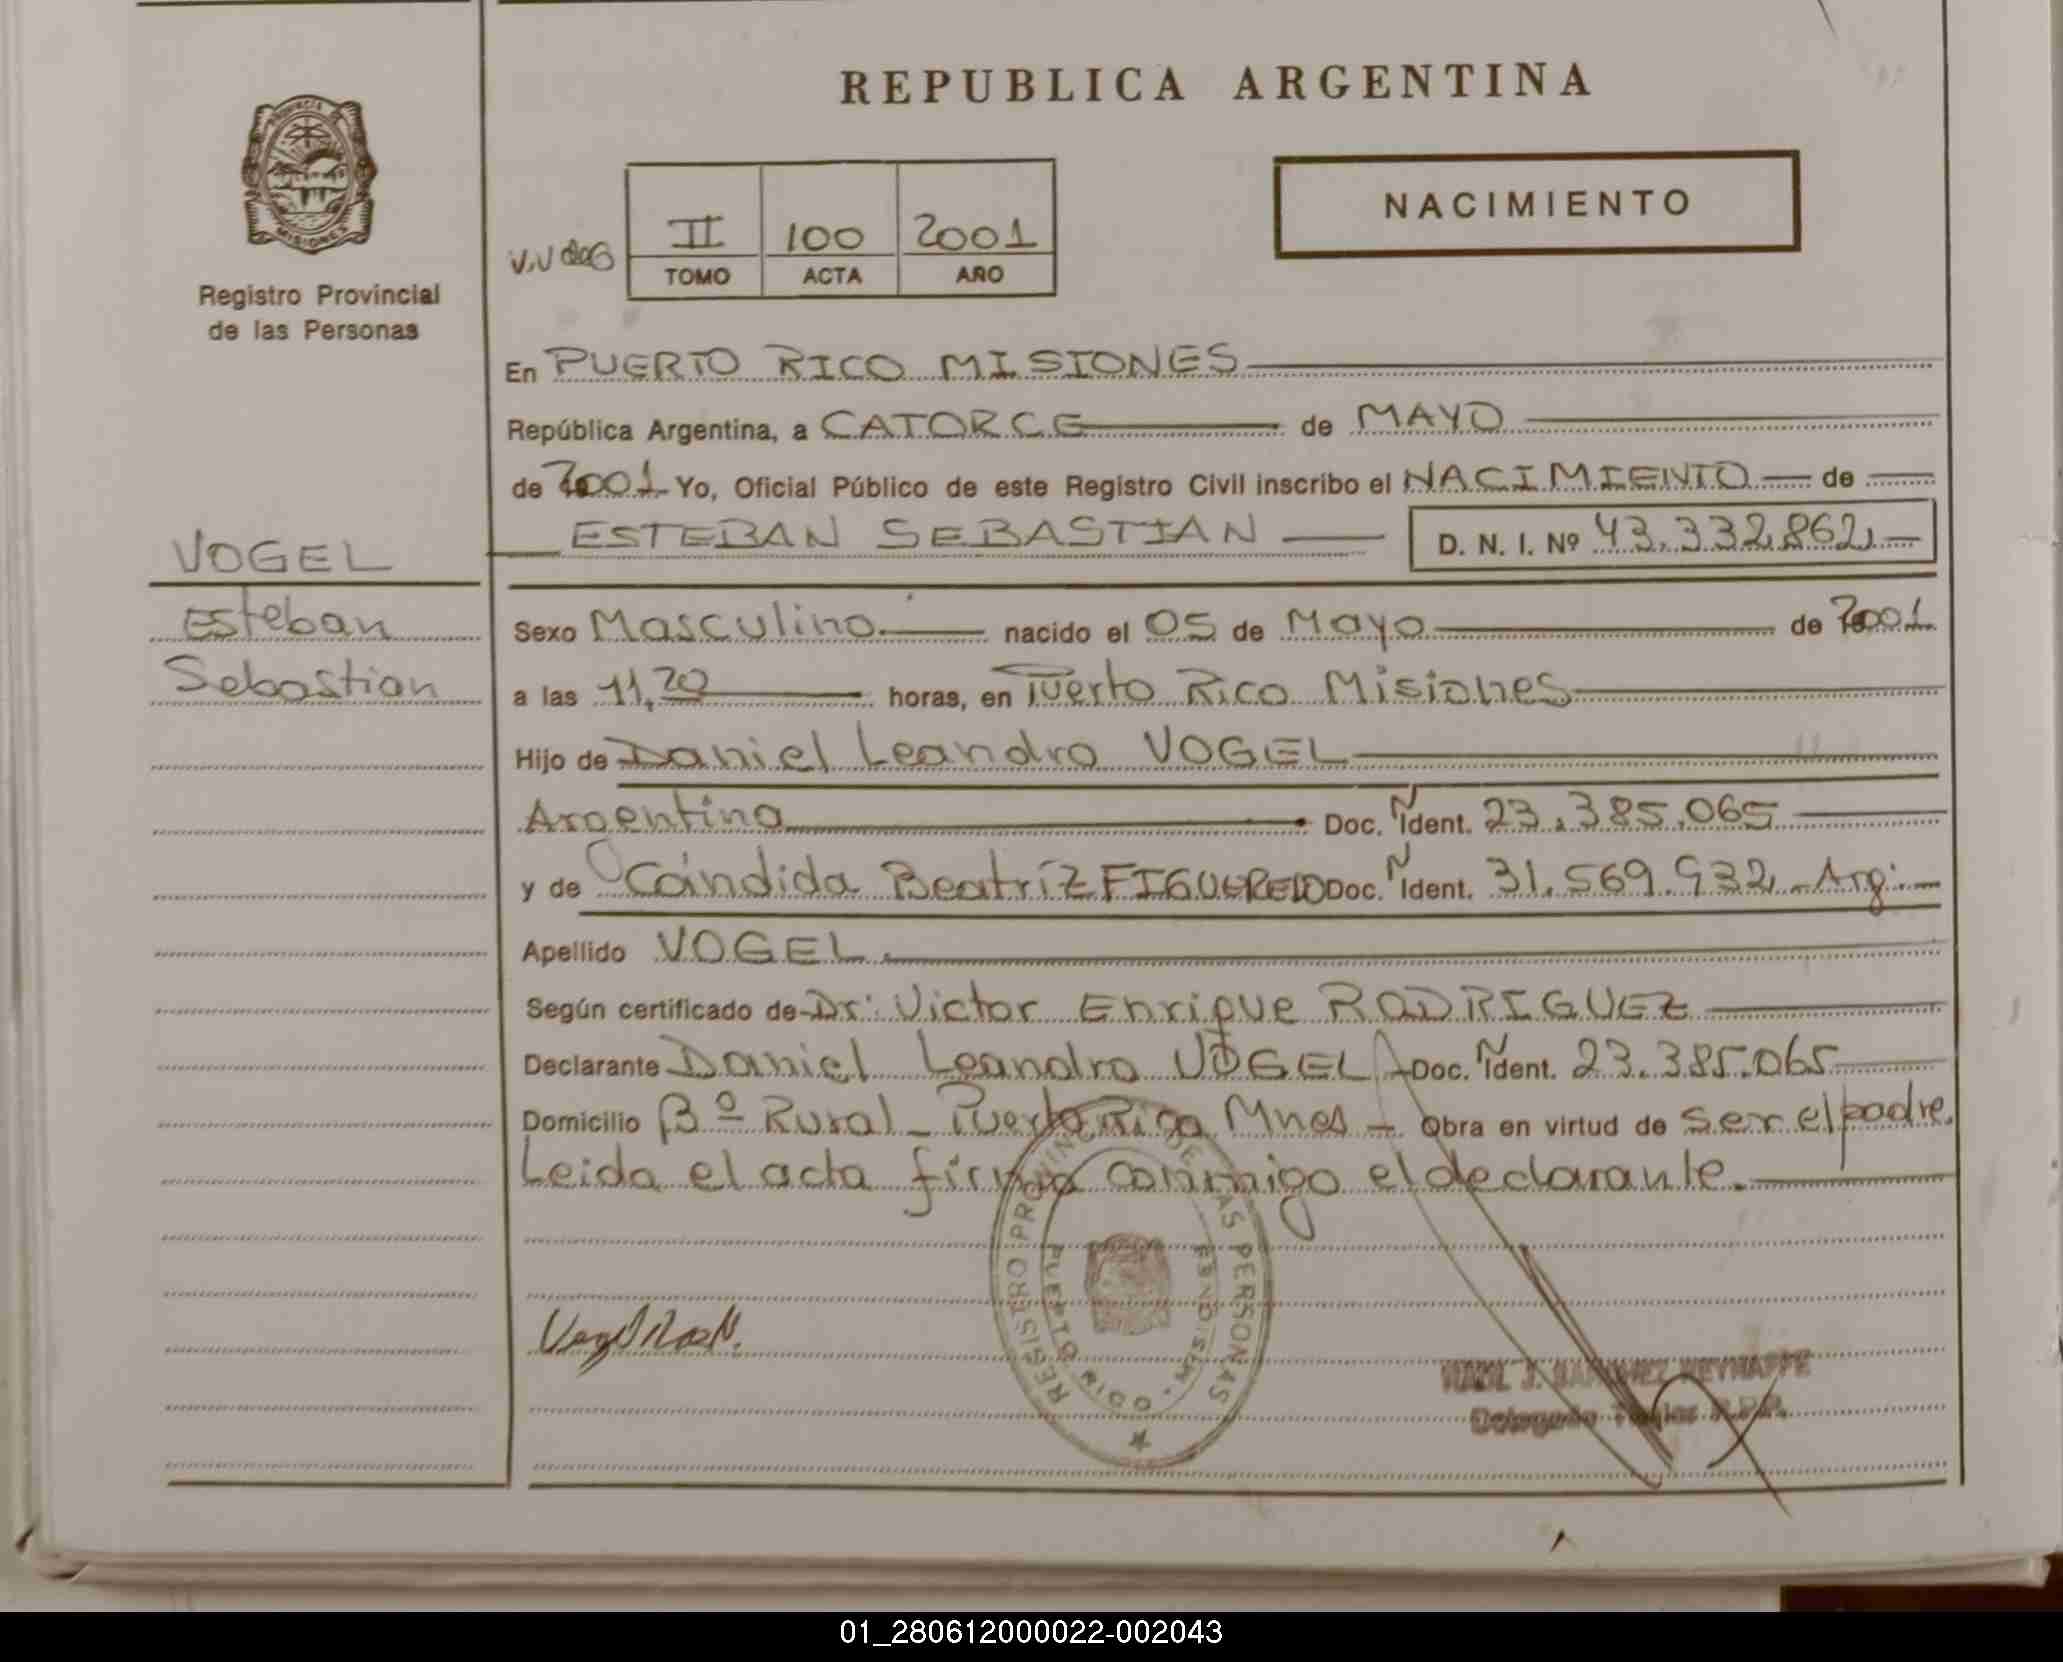 REPUBLICA ARGENTINA
PROVINCIA
MISIONES
Registro Provincial
de las Personas
NACIMIENTO
II 100 2001
TOMO ACTA AÑO
En PUERTO RICO MISIONES
República Argentina, a CATORCE de MAYO
de 2001 Yo, Oficial Público de este Registro Civil inscribo el NACIMIENTO de
ESTEBAN SEBASTIAN D. N. I. Nº 43.332.862
VOGEL
Esteban
Sebastian
Sexo Masculino nacido el 05 de Mayo de 2001
a las 11,20 horas, en Puerto Rico Misiones
Hijo de Daniel Leandro VOGEL
Argentina Doc. Ñ Ident. 23.385.065
y de Cándida Beatríz FIGUEREDO Doc. Ñ Ident. 31.569.932 Arg:
Apellido VOGEL
Según certificado de Dr: Victor Enrique RODRIGUEZ
Declarante Daniel Leandro VOGEL Doc. Ñ Ident. 23.385.065
Domicilio Bº Rural - Puerto Rico Mnes - Obra en virtud de ser el padre.
Leida el acta firma conmigo el declarante.
REGISTRO PROVINCIAL DE LAS PERSONAS
PUERTO RICO MISIONES
Delegado Titular R.P.P.
01_280612000022-002043